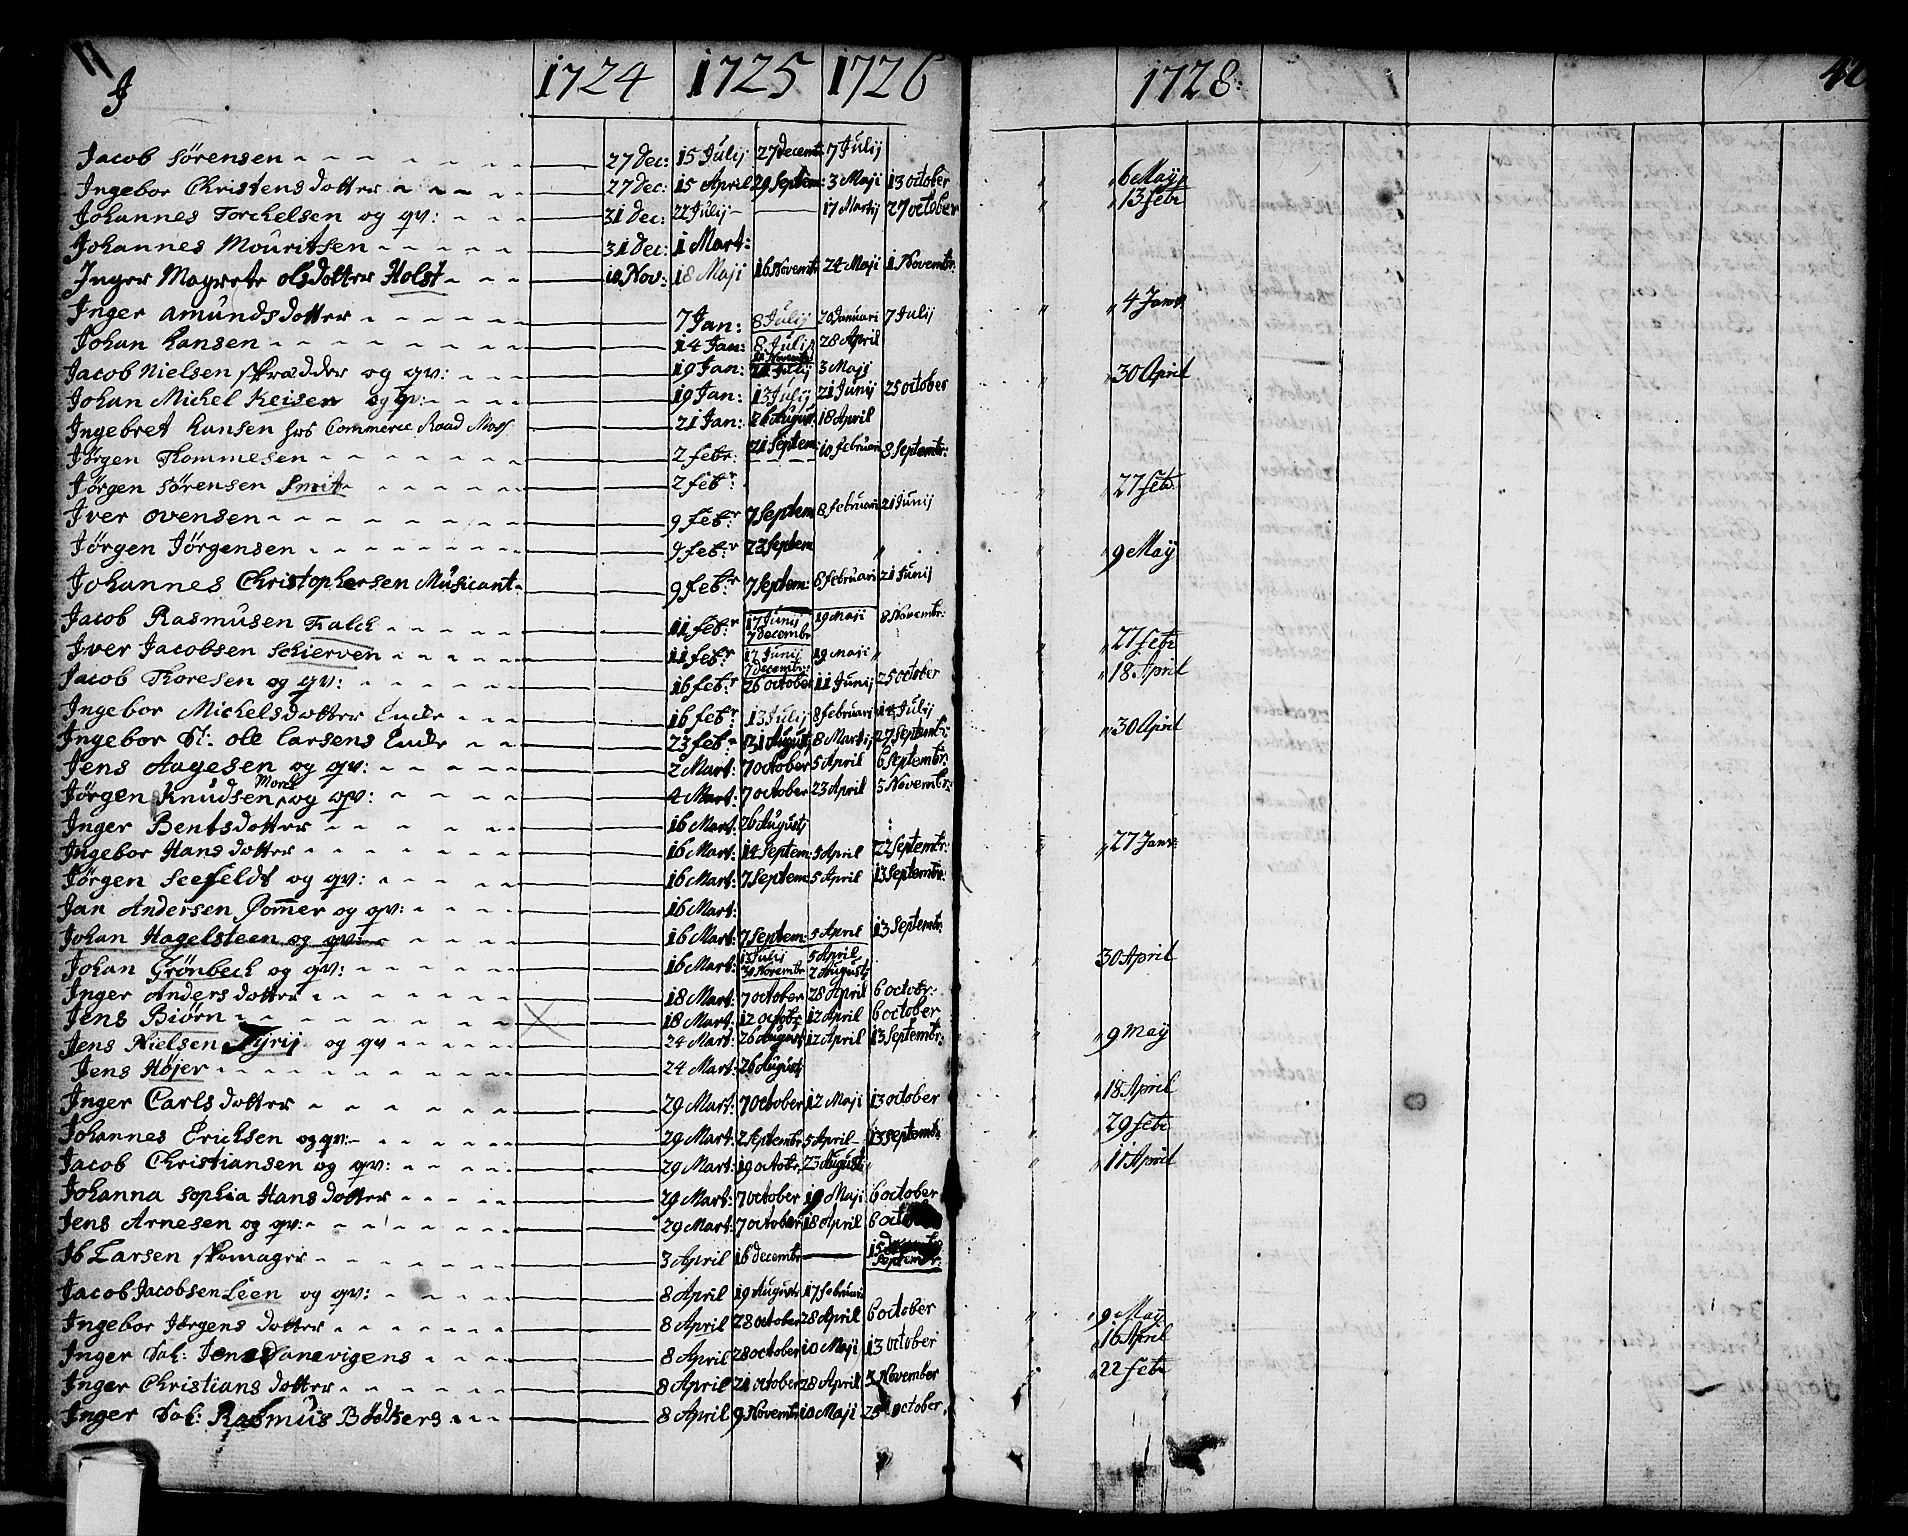 J 1724 1725 1726 1728:
Jacob Sørensen 27 Dec: 15 Julij 27 decemb 7 Julij
Ingebor Christens dotter 27 Dec: 15 April 29 Septem: 3 Maji 13 october 6 Maÿ
Johannes Torchelsen og qv: 31 Dec: 22 Julij 17 Martij 27 october 13 febr
Johannes Mouritsen 31 Dec: 1 Mart:
Inger Magrete olsdotter Holst Nov: 18 Maji 16 Novembr 24 Maji 1 Novembr:
Inger Amunds dotter 7 Jan: 8 Julij 20 Januari 7 Julij 4 Janr
Johan Hansen 14 Jan: 8 Julij 28 April
Jacob Nielsen skrædder og qv: 19 Jan: Julij 3 Maji 30 April
Johan Michel Keisen og qv: 19 Jan: 13 Julij 21 Junij 25 october
Ingebret Hansen hos Commerce Raad Moss 21 Jan: 26 Augus: 18 April
Jørgen Thommesen 2 febr: 21 Septem: 10 februari 8 Septembr:
Jørgen Sørensen Smit 2 febr 27 febr
Iver Ovensen 9 febr 7 Septem 8 februari 21 Junij
Jørgen Jørgensen 9 febr 23 Septem 9 Maÿ
Johannes Christophersen Musicant 9 febr 7 Septem: 8 februari 21 Junij
Jacob Rasmusen Falck 11 febr 17 Junij 7 decembr 19 Maji 8 Novembr:
Iver Jacobsen Schierven 11 febr 17 Junij 7 decembr: 19 Maji 27 febr
Jacob Thoresen og qv: 16 febr 26 october 11 Junij 25 october 18 April
Ingebor Michels dotter Encke 16 febr 13 Julij 8 februari 12 Julij
Ingebor Sl: Ole Larsens Encke 23 febr 31 Augusti 8 Martij 27 Septembr: 30 April
Jens Aagesen og qv: 2 Mart: 7 october 5 April 6 Septembr:
Jørgen Knudsen, og qv: Mart: 7 october 23 April 5 Novembr:
Inger Bentsdotter 16 Mart: 26 Augustj
Ingebor Hans dotter 16 Mart: 14 Septem: 5 April 22 Septembr: 27 Janr:
Jørgen Seefeldt og qv: 16 Mart: 7 Septem: 5 April 13 Septembr:
Jan Andersen Pom̄er og qv: 16 Mart:
Johan Hagelsteen og qv: 16 Mart: 7 Septem: 5 April 13 Septembr
Johan Grönbeck og qv: 16 Mart: 13 Julij 30 Novembr 5 April 2 Augustj 30 April
Inger Anders dotter 18 Mart: 7 october 28 April 6 octobr:
Jens Biørn 18 Mart: 12 octobr 12 April 6 october
Jens Nielsen Fyrij og qv 24 Mart: 26 Augusti 12 April 13 Septembr: 9 may
Jens Højer 24 Mart: 26 Augustj
Inger Carls dotter 29 Mart: 7 October 12 Maji 13 october 18 April
Johannes Erichsen og qv: 29 Mart: 2 Septembr 5 April 13 Septembr 29 febr
Jacob Christiansen og qv: 29 Mart: 19 octobr 23 Augusti 11 April
Johanna Sophia Hans dotter 29 Mart: 7 october 19 Maji 6 october
Jens Arnesen og qv: 29 Mart: 7 october 18 April 6
Ib Larsen skomager 3 April 16 decembr 15 Septembr:
Jacob Jacobsen Leen og qv: 8 April 19 Augusti 17 februarii
Ingebor Jørgens dotter 8 April 28 october 28 April 6 october 9 May
Inger Sal: Jens Danevigens 8 April 28 october 10 Maji 13 october 16 April
Inger Christians dotter 8 April 21 october 28 April November 22 febr
Inger Sal: Rasmus Bödkers 8 April 9 Novembr 10 Maji 25 october